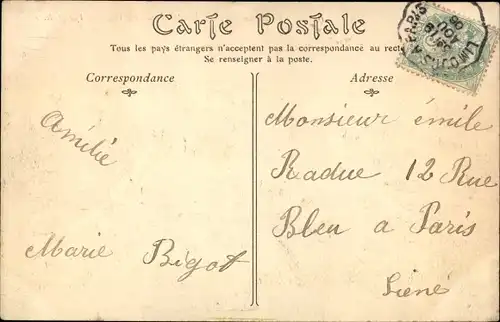 Carte Postale
Tous les pays étrangers n'acceptent pas la correspondance au recto
Se renseigner à la poste.
Correspondance
Adresse
Amitié
Marie Bigot
Monsieur émile
Radue 12 Rue
Bleu a Paris